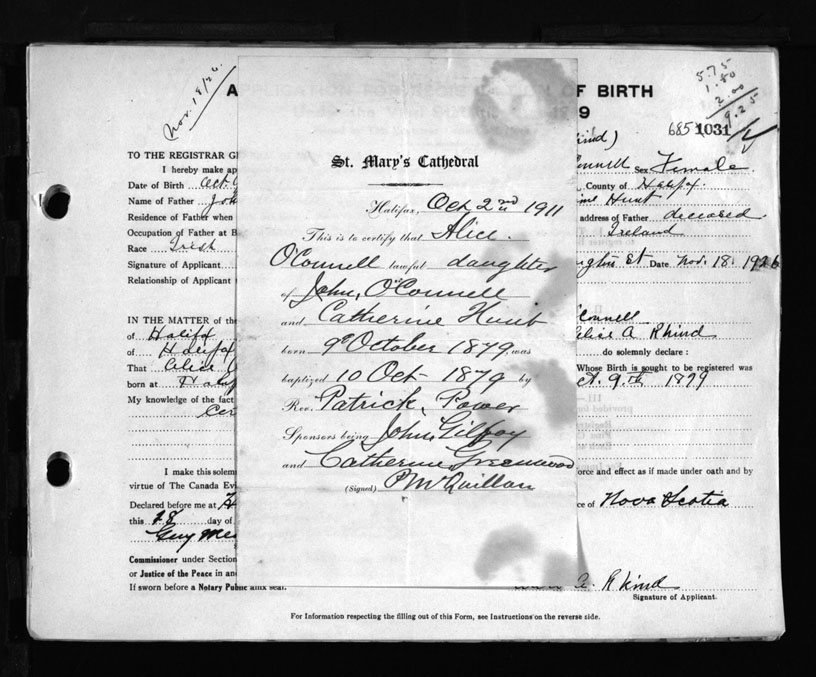 Nov. 18/26
5.75
1.50
2.00
9.25
A
OF BIRTH
9
6851031
St. Mary's Cathedral
Halifax, Oct 2nd 1911
This is to certify that Alice
O'Connell lawful daughter
of John O'Connell
and Catherine Hunt
born 9th October 1879 was
baptized 10 Oct- 1879 by
Rev. Patrick Power
Sponsors being John Gilfoy
and Catherine Greenwood
(Signed) P McQuillan
TO THE REGISTRAR GE
I hereby make ap
Date of Birth Oct. 9
Name of Father Joh
Residence of Father when
Occupation of Father at B
Race Irish
Signature of Applicant
Relationship of Applicant
nnell Sex Female
County of Halifx.
ine Hunt
address of Father deceased
Ireland
ington St Date Nov. 18. 1926
IN THE MATTER of the
of Halifax
of Halifax
That Alice
born at Halif
My knowledge of the fact
Cer
O'Connell
Alice A Rhind
do solemnly declare :
Whose Birth is sought to be registered was
ct. 9th 1879
I make this solem
virtue of The Canada Evi
Declared before me at H
this 18 day of
Guy
force and effect as if made under oath and by
ce of Nova Scotia
Commissioner under Section
or Justice of the Peace in an
If sworn before a Notary Public affix seal.
A. Rhind
Signature of Applicant.
For Information respecting the filling out of this Form, see Instructions on the reverse side.